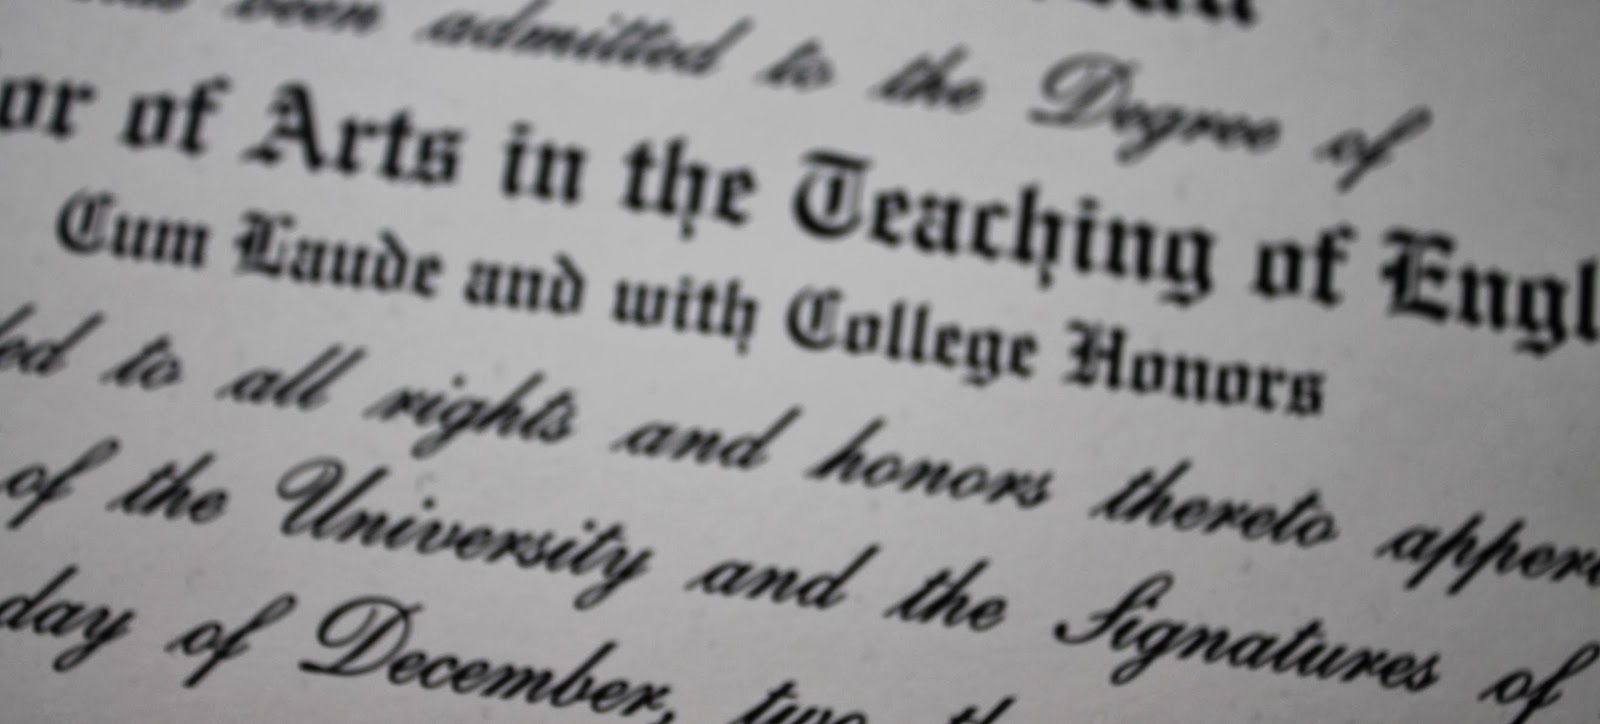 been admitted to the Degree of
or of Arts in the Teaching of Engl
Cum Laude and with College Honors
ed to all rights and honors thereto apper
of the University and the Signatures of
day of December, two th